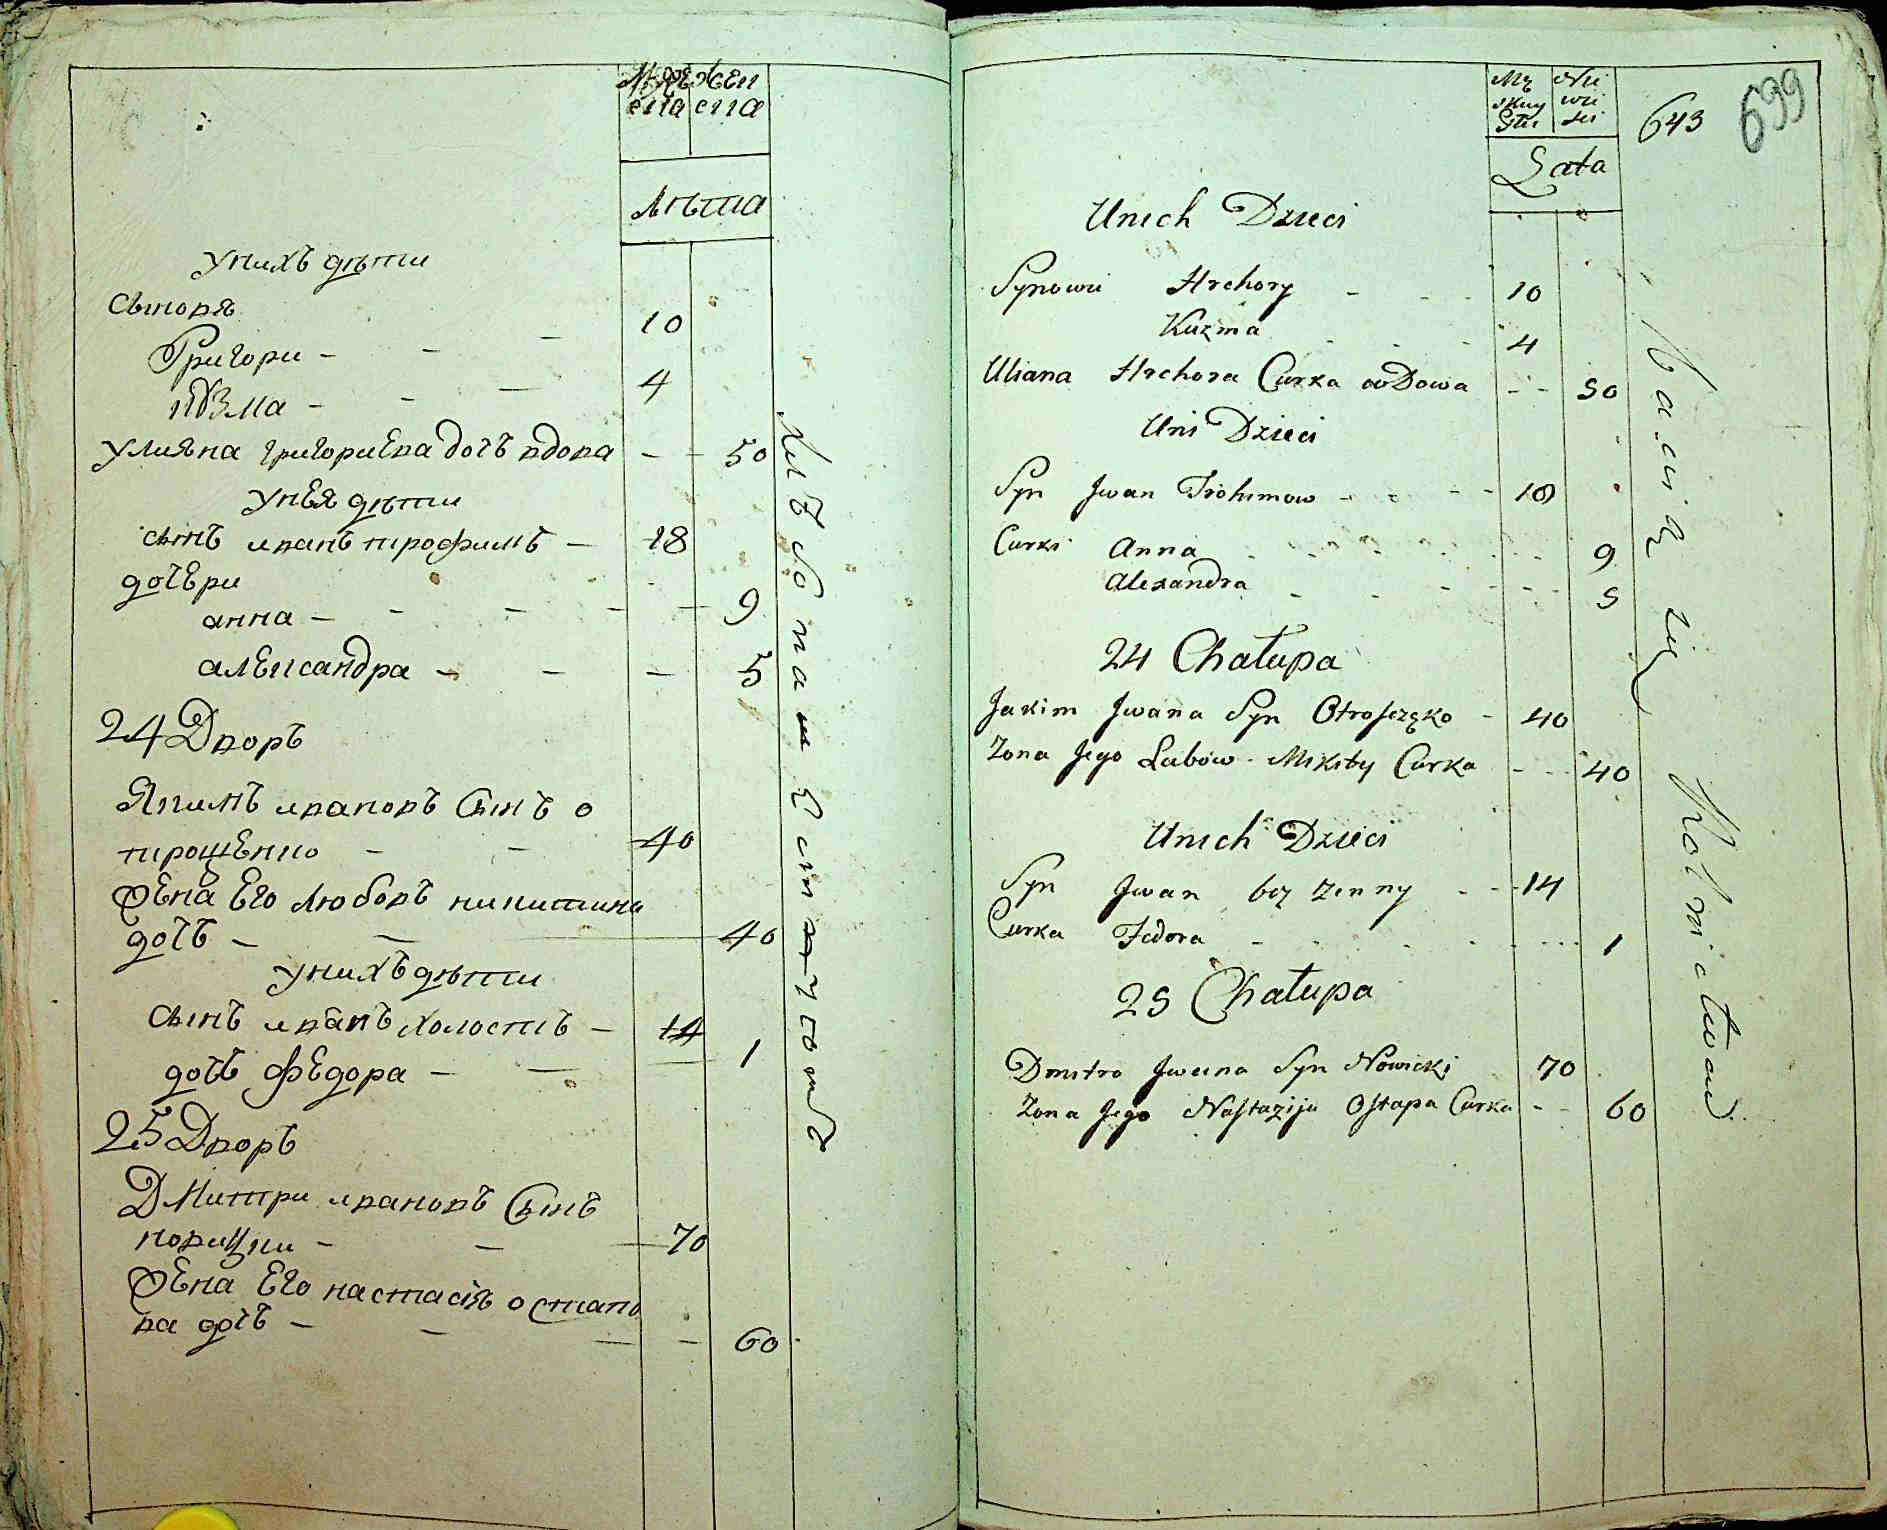 Мужеска Женска
лѣта
у нихъ дѣти
сыновя
Григори - - - 10
кузма - - - 4
улияна григориева дочъ вдова - - 50
у нея дѣти
сынъ иванъ трофимъ - 18
дочери
анна - - - - - 9
александра - - - 5
24 Дворъ
Якимъ ивановъ сынъ о
трощенко - - 40
Жена Его любовъ никитина
дочъ - - 40
у нихъ дѣти
сынъ иванъ холостъ - 14
дочъ федора - - - 1
25 Дворъ
Дмитри ивановъ сынъ
новицки - - - 70
Жена Его настасія остапо
ва дочъ - - - - 60
643
699
Lata
Unich Dzieci
Synowie Hrehory - - - 10
Kuzma - - - 4
Uliana Hrehora Curka wDowa - - 50
Uni Dzieci
Syn Jwan Trohimow - - - - 18
Curki Anna - - - 9
Alexandra - - - 5
24 Chałupa
Jakim Jwana Syn Otroszczęko - 40
Zona Jego Lubow Mikity Curka - - - 40
Unich Dzieci
Syn Jwan bez zenny - - - 14
Curka Fedora - - - 1
25 Chałupa
Dmitro Jwana Syn Nowicki 70
Zona Jego Nastaziju Ostapa Curka - - 60